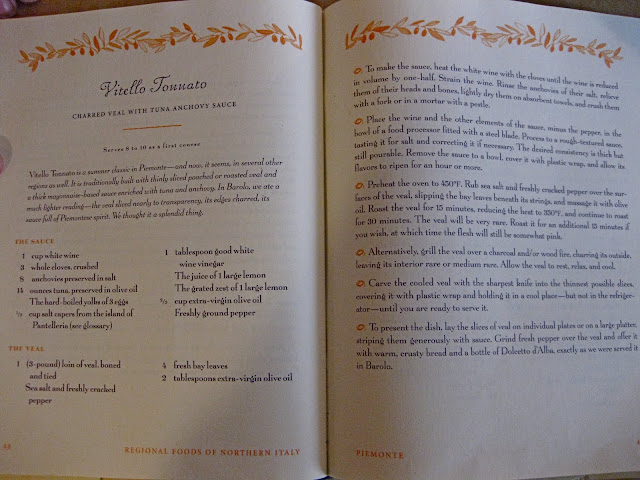 Vitello Tonnato
CHARRED VEAL WITH TUNA ANCHOVY SAUCE
Serves 8 to 10 as a first course
Vitello Tonnato is a summer classic in Piemonte—and now, it seems, in several other
regions as well. It is traditionally built with thinly sliced poached or roasted veal and
a thick mayonnaise-based sauce enriched with tuna and anchovy. In Barolo, we ate a
much lighter reading—the veal sliced nearly to transparency, its edges charred, its
sauce full of Piemontese spirit. We thought it a splendid thing.
THE SAUCE
1 cup white wine
3 whole cloves, crushed
8 anchovies preserved in salt
14 ounces tuna, preserved in olive oil
The hard-boiled yolks of 3 eggs
1/2 cup salt capers from the island of
Pantelleria (see glossary)
1 tablespoon good white
wine vinegar
The juice of 1 large lemon
The grated zest of 1 large lemon
cup extra-virgin olive oil
Freshly ground pepper
THE VEAL
1 (3-pound) loin of veal, boned
and tied
Sea salt and freshly cracked
pepper
4 fresh bay leaves
2 tablespoons extra-virgin olive oil
REGIONAL FOODS OF NORTHERN ITALY
To make the sauce, heat the white wine with the cloves until the wine is reduced
in volume by one-half. Strain the wine. Rinse the anchovies of their salt, relieve
them of their heads and bones, lightly dry them on absorbent towels, and crush them
with a fork or in a mortar with a pestle.
Place the wine and the other elements of the sauce, minus the pepper, in the
bowl of a food processor fitted with a steel blade. Process to a rough-textured sauce,
tasting it for salt and correcting it if necessary. The desired consistency is thick but
still pourable. Remove the sauce to a bowl, cover it with plastic wrap, and allow its
flavors to ripen for an hour or more.
Preheat the oven to 450°F. Rub sea salt and freshly cracked pepper over the sur-
faces of the veal, slipping the bay leaves beneath its strings, and massage it with olive
oil. Roast the veal for 15 minutes, reducing the heat to 350°F, and continue to roast
for 30 minutes. The veal will be very rare. Roast it for an additional 15 minutes if
you wish, at which time the flesh will still be somewhat pink.
Alternatively, grill the veal over a charcoal and/or wood fire, charring its outside,
leaving its interior rare or medium rare. Allow the veal to rest, relax, and cool.
Carve the cooled veal with the sharpest knife into the thinnest possible slices,
covering it with plastic wrap and holding it in a cool place—but not in the refriger-
ator—until you are ready to serve it.
To present the dish, lay the slices of veal on individual plates or on a large platter,
striping them generously with sauce. Grind fresh pepper over the veal and offer it
with warm, crusty bread and a bottle of Dolcetto d'Alba, exactly as we were served it
in Barolo.
PIEMONTE